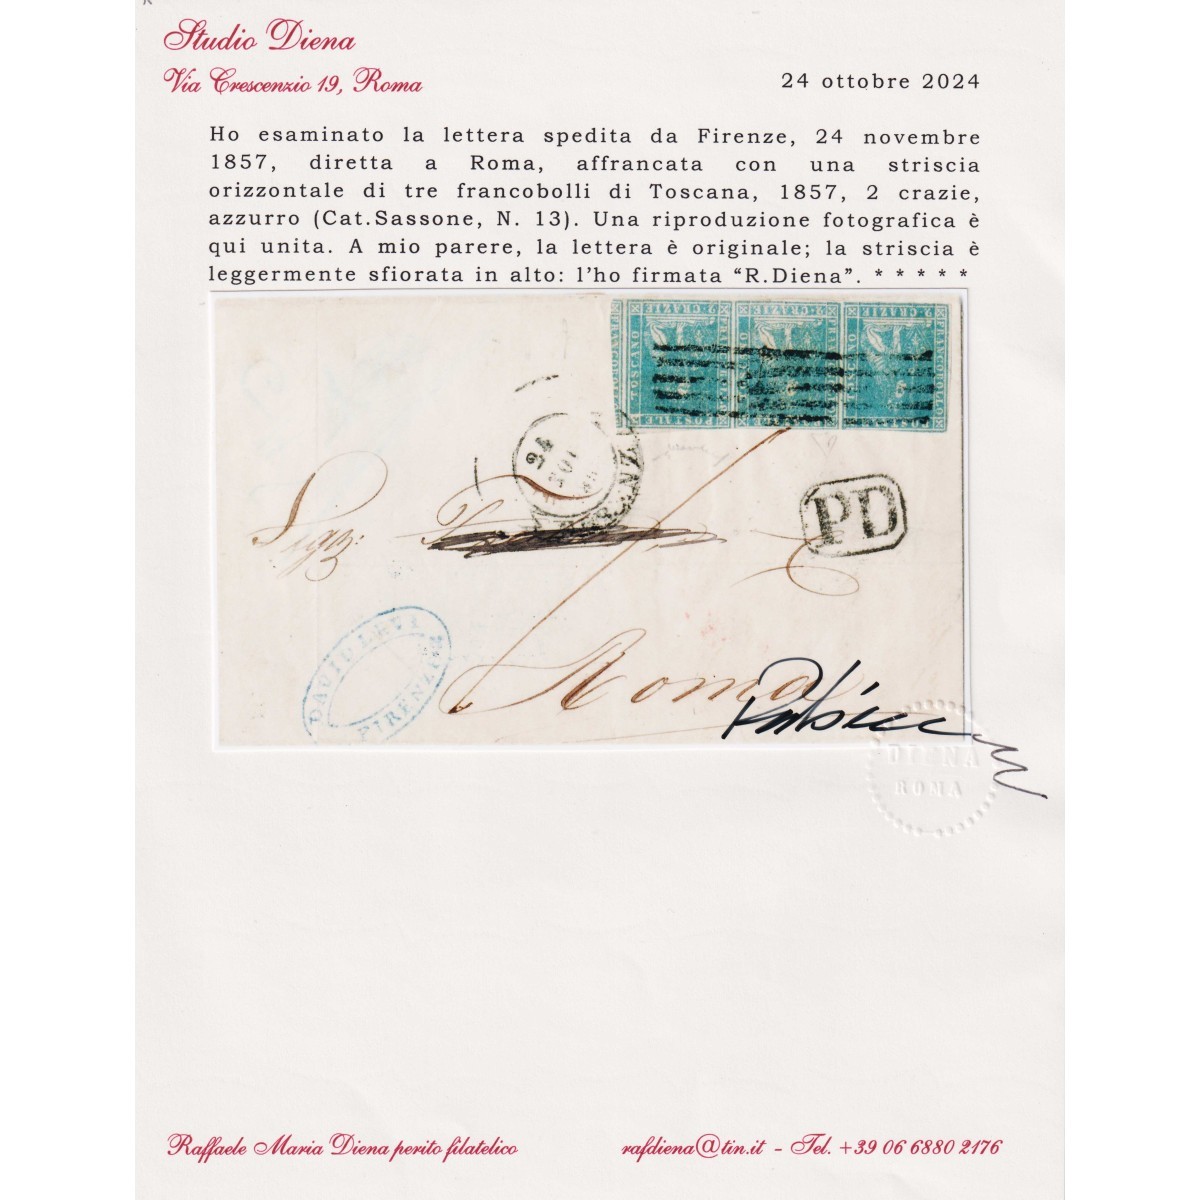 Studio Diena
Via Crescenzio 19, Roma
24 ottobre 2024
Ho esaminato la lettera spedita da Firenze, 24 novembre
1857, diretta a Roma, affrancata con una striscia
orizzontale di tre francobolli di Toscana, 1857, 2 crazie,
azzurro (Cat.Sassone, N. 13). Una riproduzione fotografica è
qui unita. A mio parere, la lettera è originale; la striscia è
leggermente sfiorata in alto: l'ho firmata “R.Diena”. * * * * *
2·CRAZIE
TOSCANO
POSTALE
2·CRAZIE
2·CRAZIE
FRANCOBOLLO
TOSCANO
POSTALE
24
PD
Roma
DAVID LEVI
FIRENZE
DIENA
ROMA
Raffaele Maria Diena perito filatelico
rafdiena@tin.it - Tel. +39 06 6880 2176